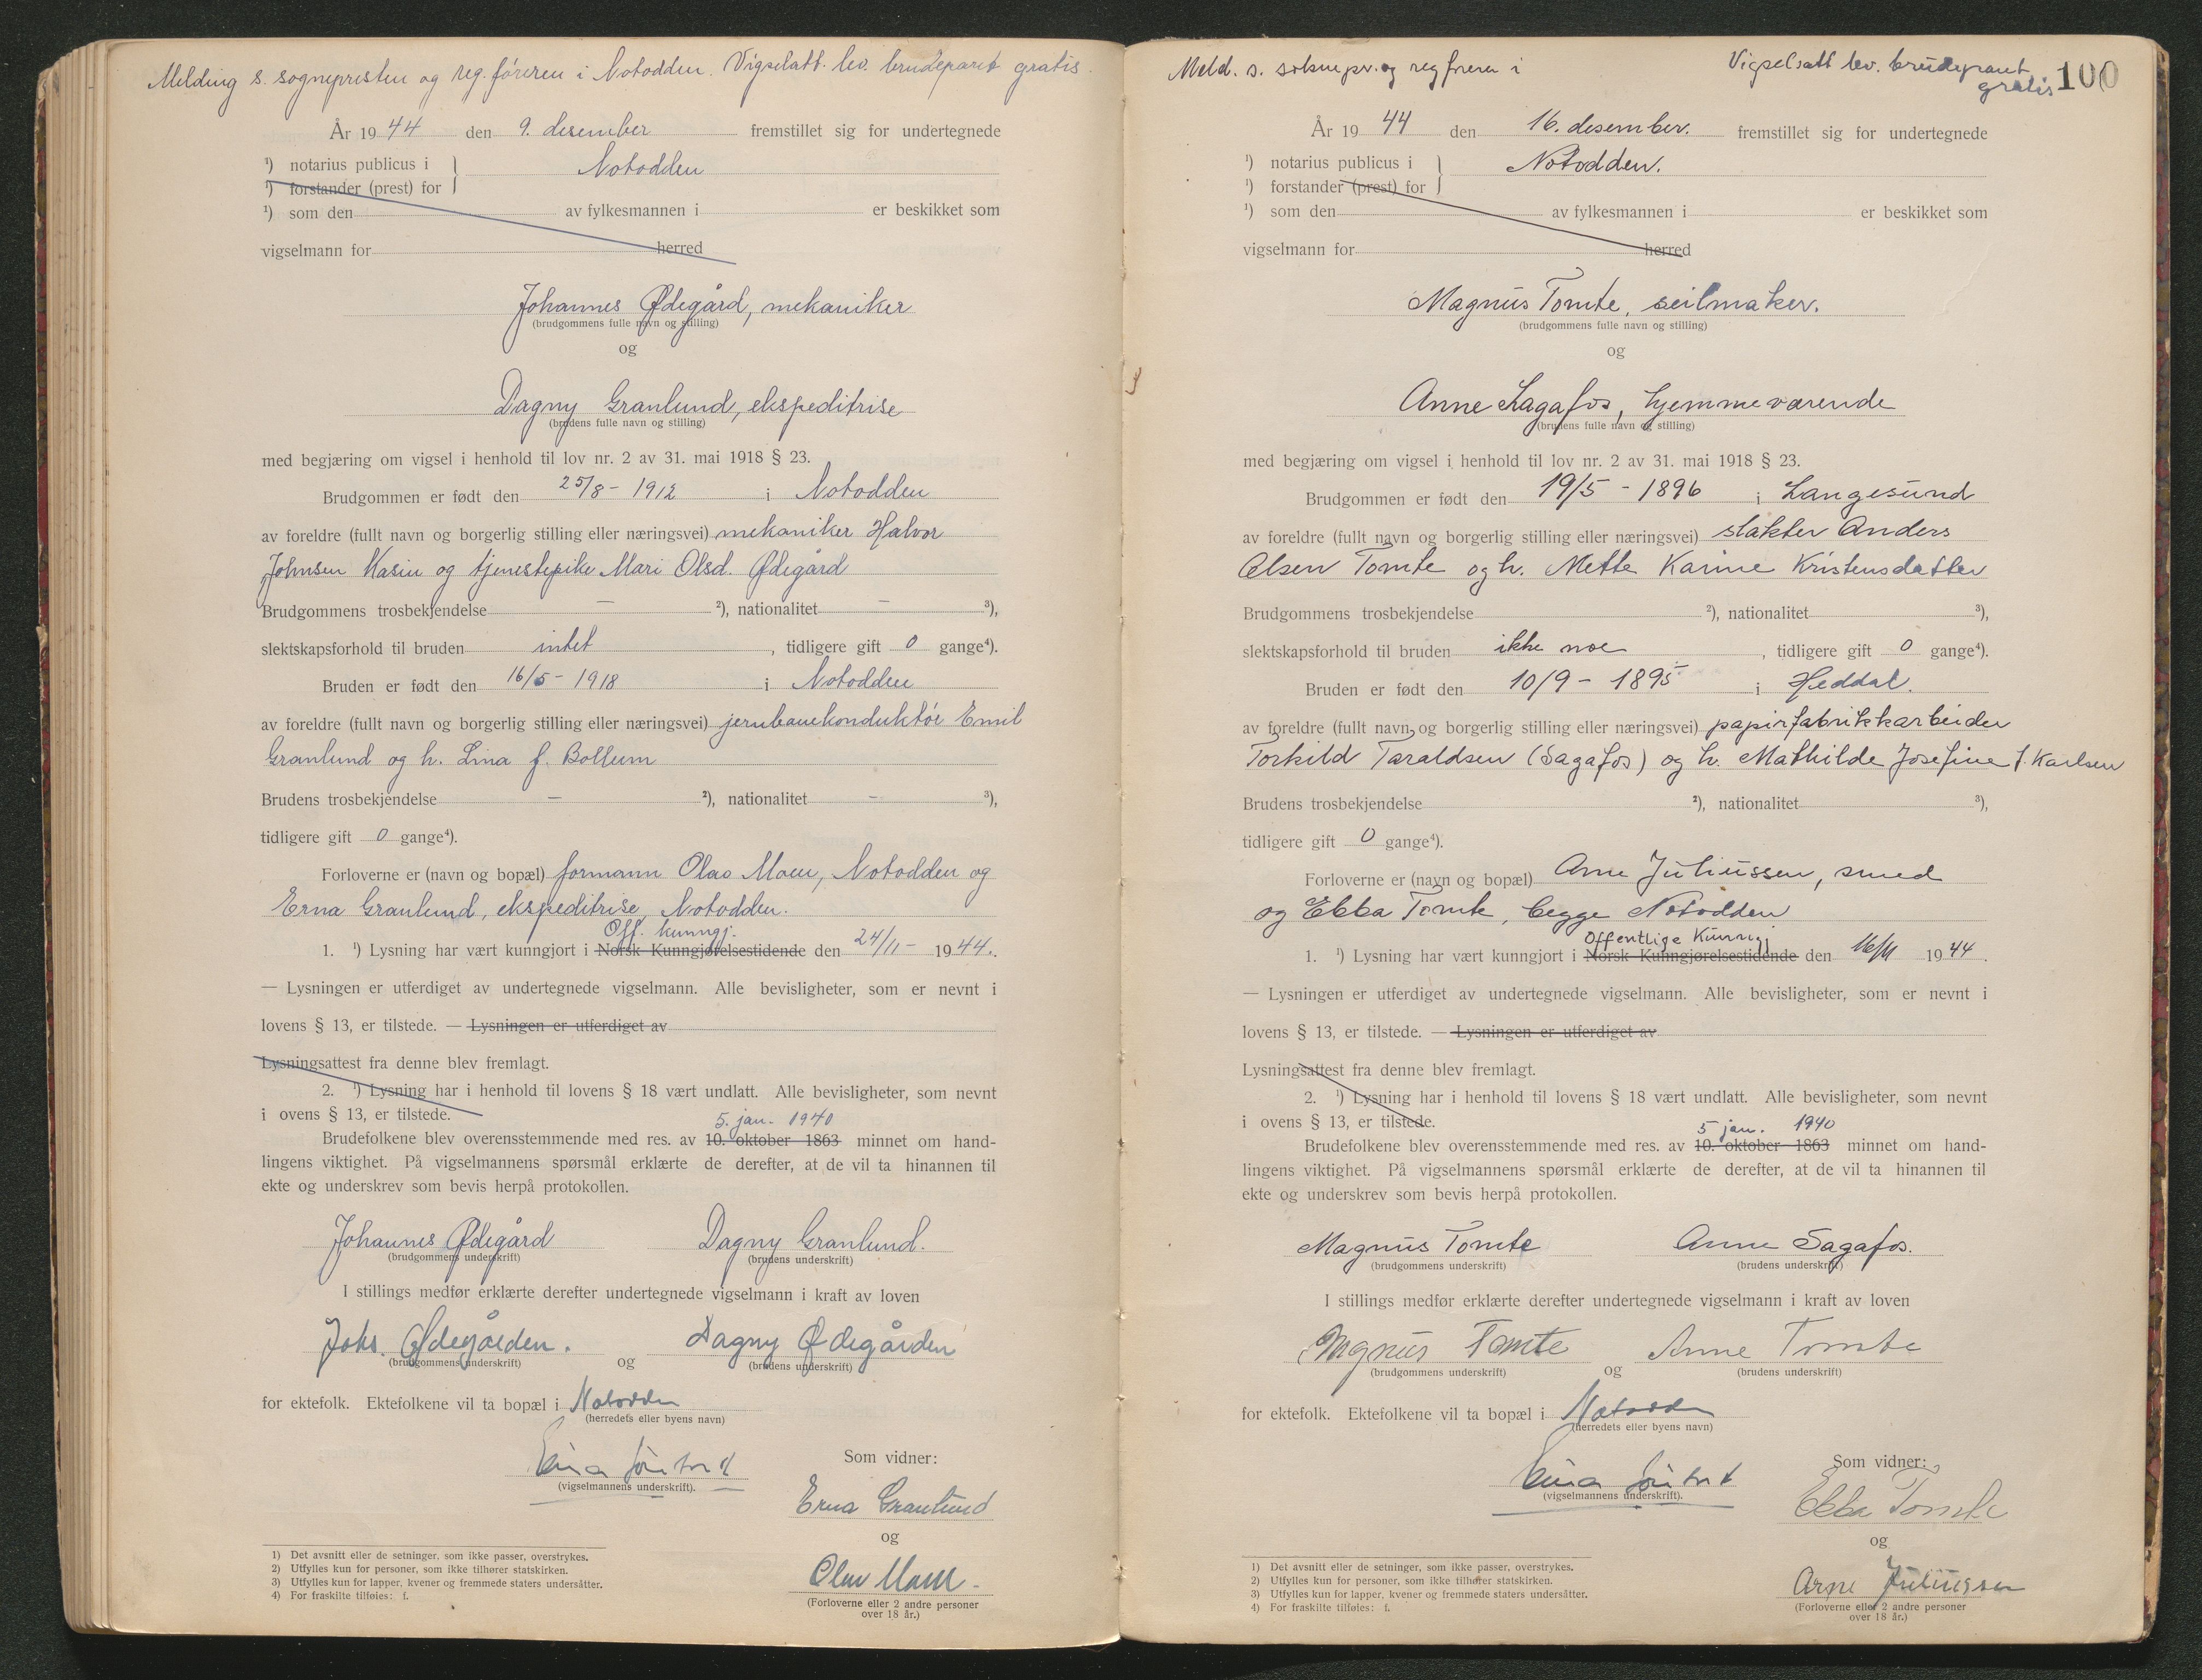 Melding s. sognepresten og reg.føreren i Notodden. Vigselatt. lev. brudeparet gratis.
År 1944 den 9. desember fremstillet sig for undertegnede
¹) notarius publicus i } Notodden
¹) forstander (prest) for
¹) som den av fylkesmannen i er beskikket som
vigselmann for herred
Johannes Ødegård, mekaniker
(brudgommens fulle navn og stilling)
og
Dagny Granlund, ekspeditrise
(brudens fulle navn og stilling)
med begjæring om vigsel i henhold til lov nr. 2 av 31. mai 1918 § 23.
Brudgommen er født den 25/8 - 1912 i Notodden
av foreldre (fullt navn og borgerlig stilling eller næringsvei) mekaniker Halvor
Johnsen Kasin og tjenestepike Mari Olsd. Ødegård
Brudgommens trosbekjendelse — ²), nationalitet — ³),
slektskapsforhold til bruden intet, tidligere gift 0 gange⁴).
Bruden er født den 16/5 - 1918 i Notodden
av foreldre (fullt navn og borgerlig stilling eller næringsvei) jernbanekonduktør Emil
Granlund og h. Lina f. Bollum
Brudens trosbekjendelse — ²), nationalitet — ³),
tidligere gift 0 gange⁴).
Forloverne er (navn og bopæl) formann Olav Moen, Notodden og
Erna Granlund, ekspeditrise, Notodden.
Off. kunngj.
1. ¹) Lysning har vært kunngjort i Norsk Kunngjørelsestidende den 24/11 - 1944.
— Lysningen er utferdiget av undertegnede vigselmann. Alle bevisligheter, som er nevnt i
lovens § 13, er tilstede. — Lysningen er utferdiget av
Lysningsattest fra denne blev fremlagt.
2. ¹) Lysning har i henhold til lovens § 18 vært undlatt. Alle bevisligheter, som nevnt
i ovens § 13, er tilstede.
5. jan. 1940
Brudefolkene blev overensstemmende med res. av 10. oktober 1863 minnet om hand-
lingens viktighet. På vigselmannens spørsmål erklærte de derefter, at de vil ta hinannen til
ekte og underskrev som bevis herpå protokollen.
Johannes Ødegård Dagny Granlund.
(brudgommens underskrift) (brudens underskrift)
I stillings medfør erklærte derefter undertegnede vigselmann i kraft av loven
Johs. Ødegården. og Dagny Ødegården
(brudgommens underskrift) (brudens underskrift)
for ektefolk. Ektefolkene vil ta bopæl i Notodden
(herredets eller byens navn)
(vigselmannens underskrift).
Som vidner:
Erna Granlund
og
Olav Moen.
(Forloverne eller 2 andre personer
over 18 år.)
1) Det avsnitt eller de setninger. som ikke passer, overstrykes.
2) Utfylles kun for personer, som ikke tilhører statskirken.
3) Utfylles kun for lapper, kvener og fremmede staters undersåtter.
4) For fraskilte tilføies: f.
Meld. s. soknepr. og regfører i Vigselsatt lev. brudeparet
gratis 100
År 1944 den 16. desember. fremstillet sig for undertegnede
¹) notarius publicus i } Notodden.
¹) forstander (prest) for
¹) som den av fylkesmannen i er beskikket som
vigselmann for herred
Magnus Tomte, seilmaker.
(brudgommens fulle navn og stilling)
og
Anne Sagafos, hjemmeværende
(brudens fulle navn og stilling)
med begjæring om vigsel i henhold til lov nr. 2 av 31. mai 1918 § 23.
Brudgommen er født den 19/5 - 1896 i Langesund
av foreldre (fullt navn og borgerlig stilling eller næringsvei) slakter Anders
Olsen Tomte og h. Mette Karine Kristensdatter
Brudgommens trosbekjendelse ²), nationalitet ³),
slektskapsforhold til bruden ikke noe, tidligere gift 0 gange⁴).
Bruden er født den 10/9 - 1895 i Heddal.
av foreldre (fullt navn og borgerlig stilling eller næringsvei) papirfabrikkarbeider
Torkild Taraldsen (Sagafos) og h. Mathilde Josefine f. Karlsen
Brudens trosbekjendelse ²), nationalitet ³),
tidligere gift 0 gange⁴).
Forloverne er (navn og bopæl) Arne Juliussen, smed
og Ebba Tomte, begge Notodden
Offentlige Kunngj
1. ¹) Lysning har vært kunngjort i Norsk Kunngjørelsestidende den 16/11 1944.
— Lysningen er utferdiget av undertegnede vigselmann. Alle bevisligheter, som er nevnt i
lovens § 13, er tilstede. — Lysningen er utferdiget av
Lysningsattest fra denne blev fremlagt.
2. ¹) Lysning har i henhold til lovens § 18 vært undlatt. Alle bevisligheter, som nevnt
i ovens § 13, er tilstede.
5 jan. 1940
Brudefolkene blev overensstemmende med res. av 10. oktober 1863 minnet om hand-
lingens viktighet. På vigselmannens spørsmål erklærte de derefter, at de vil ta hinannen til
ekte og underskrev som bevis herpå protokollen.
Magnus Tomte Anne Sagafos.
(brudgommens underskrift) (brudens underskrift)
I stillings medfør erklærte derefter undertegnede vigselmann i kraft av loven
Magnus Tomte og Anne Tomte
(brudgommens underskrift) (brudens underskrift)
for ektefolk. Ektefolkene vil ta bopæl i Notodden
(herredets eller byens navn)
(vigselmannens underskrift).
Som vidner:
Ebba Tomte
og
Arne Juliussen
(Forloverne eller 2 andre personer
over 18 år.)
1) Det avsnitt eller de setninger, som ikke passer, overstrykes.
2) Utfylles kun for personer, som ikke tilhører statskirken.
3) Utfylles kun for lapper, kvener og fremmede staters undersåtter.
4) For fraskilte tilføies: f.